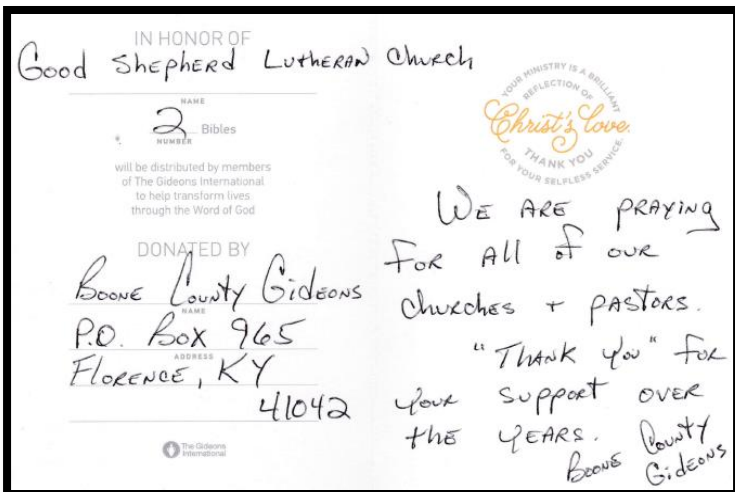 IN HONOR OF
Good Shepherd Lutheran Church
NAME
2 Bibles
NUMBER
will be distributed by members
of The Gideons International
to help transform lives
through the Word of God
DONATED BY
Boone County Gideons
NAME
P.O. Box 965
ADDRESS
Florence, KY
41042
The Gideons
International
YOUR MINISTRY IS A BRILLIANT
REFLECTION OF
Christ's love.
THANK YOU
FOR YOUR SELFLESS SERVICE.
We are praying
for all of our
churches + pastors.
"Thank you" for
your support over
the years.
Boone County
Gideons